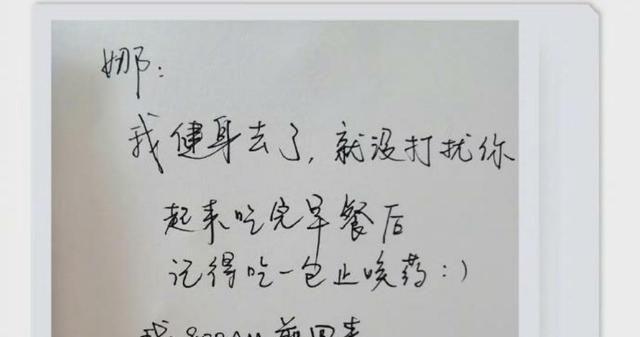 娜:
我健身去了,就没打扰你
起来吃完早餐后
记得吃一包止咳药:)